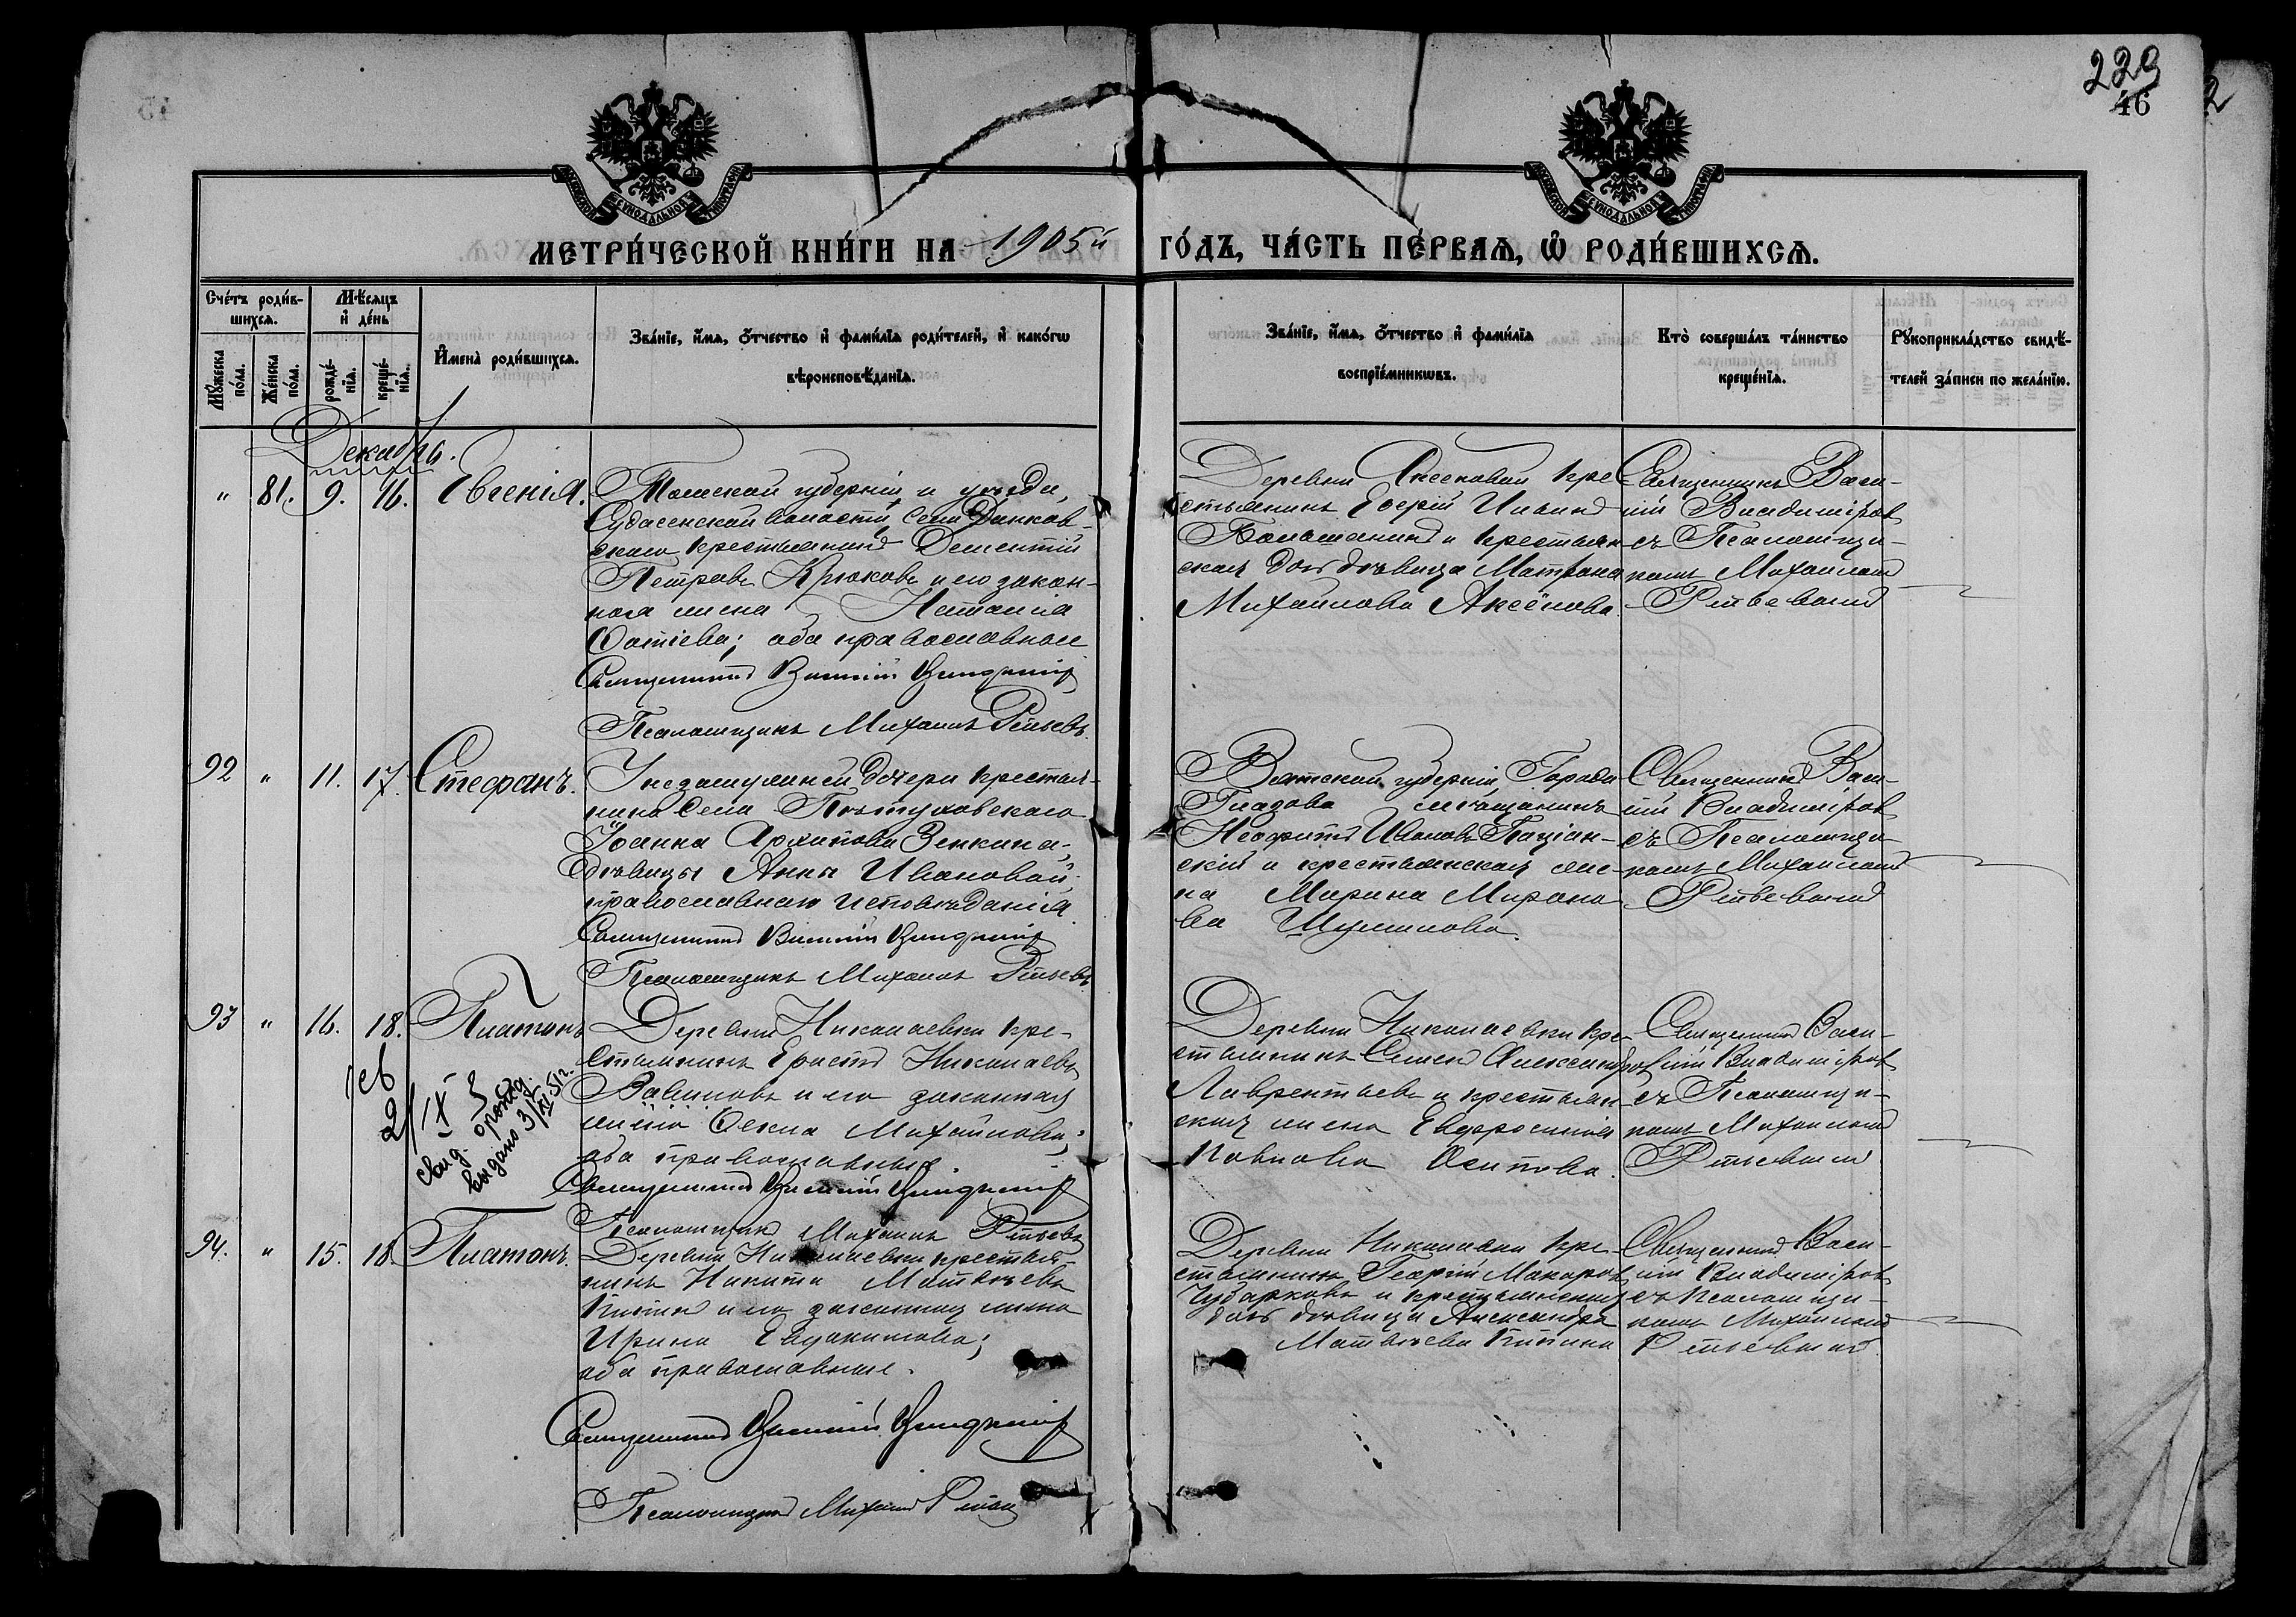 229
46
2
МОСКОВСКОЙ СѴНОДАЛЬНОЙ ТИПОГРАФІИ
МОСКОВСКОЙ СѴНОДАЛЬНОЙ ТИПОГРАФІИ
МЕТРИ́ЧЕСКОЙ КНИ́ГИ НА 1905й ГО́ДЪ, ЧА́СТЬ ПЕ́РВАѦ, Ѡ҆ РОДИ́ВШИХСѦ.
Сче́тъ роди́в-
шихсѧ.
Мѣ́сѧцъ
и҆ де́нь
Мꙋ́жеска
по́ла.
Же́нска
по́ла.
рожде́-
нїѧ.
креще́-
нїѧ.
И҆мена̀ роди́вшихсѧ.
Зва́нїе, и҆́мѧ, ѻ҆́тчество и҆ фами́лїѧ роди́телей, и҆ како́гѡ
вѣроисповѣ́данїѧ.
Зва́нїе, и҆́мѧ, ѻ҆́тчество и҆ фами́лїѧ
воспрїе́мникѡвъ.
Кто̀ соверша́лъ та́инство
креще́нїѧ.
Рꙋкоприкла́дство свидѣ́-
телей за́писи по жела́нїю.
Декабрь.
" 81. 9. 16. Евгенія.
Томской губерніи и уѣзда,
волости, Села
крестьянинъ Дементій
Петровъ Крюковъ и его закон-
ная жена Наталія
Фотіева; оба православные
Священникъ Василій Владиміровъ
Псаломщикъ Михаилъ
Деревни Аксеновой кре
стьянинъ Іовъ
и крестьян
ская дочь дѣвица Матрона
Михайлова Аксёнова.
Священникъ Васи-
лій Владиміровъ
съ Псаломщи-
комъ Михаиломъ
92 " 11. 17. Стефанъ.
У дочери крестья-
нина Села Пѣтуховскаго
Іоанна Архипова Зенкина,
дѣвицы Анны Ивановой,
православнаго исповѣданія.
Священникъ Василій Владиміровъ
Псаломщикъ Михаилъ
Вятской губерніи Города
Глазова мѣщанинъ
Неофитъ Ивановъ
скій и крестьянская же-
на Марина Миро но
ва Шумилова.
Священникъ Васи-
лій Владиміровъ
съ Псаломщи-
комъ Михаиломъ
93 " 16. 18. Платонъ
Деревни Николаевки кре-
стьянинъ Ерастъ Николаевъ
Вавиловъ и его законная
жена Фекла Михайлова;
оба православные.
Священникъ Василій Владиміровъ
Псаломщикъ Михаилъ
2/IX
свид. о рожд.
выдано 3/XI 51 г.
Деревни Николаевки кре-
стьянинъ Семенъ Александровъ
Лаврентьевъ и крестьян
ская жена Евфросинія
Павлова Осипова.
Священникъ Васи-
лій Владиміровъ
съ Псаломщи-
комъ Михаиломъ
94. " 15. 18. Платонъ.
Деревни Николаевки крестья-
нинъ Никита Матвѣевъ
и его законная жена
Ирина Евдокимова;
оба православные.
Священникъ Василій Владиміровъ
Псаломщикъ Михаилъ
Деревни Николаевки кре-
стьянинъ Георгій Макаровъ
Чубарковъ и крестьянская
дочь дѣвица Александра
Матвѣева
Священникъ Васи-
лій Владиміровъ
съ Псаломщи-
комъ Михаиломъ